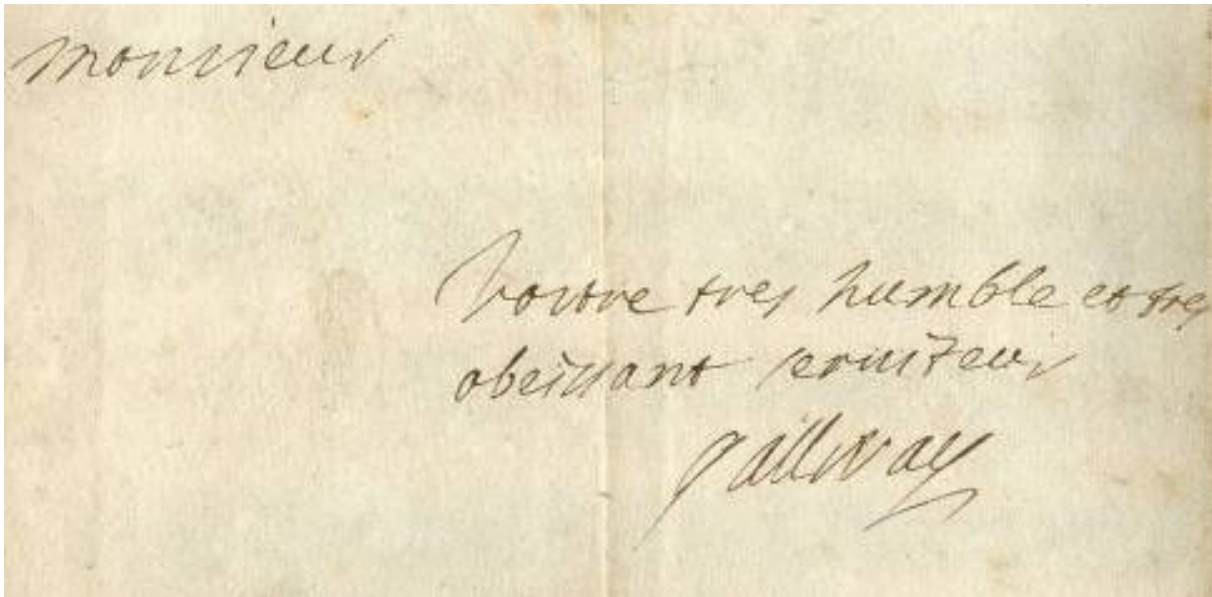 monsieur
Vostre tres humble et tres
obeissant seruiteur
gallway